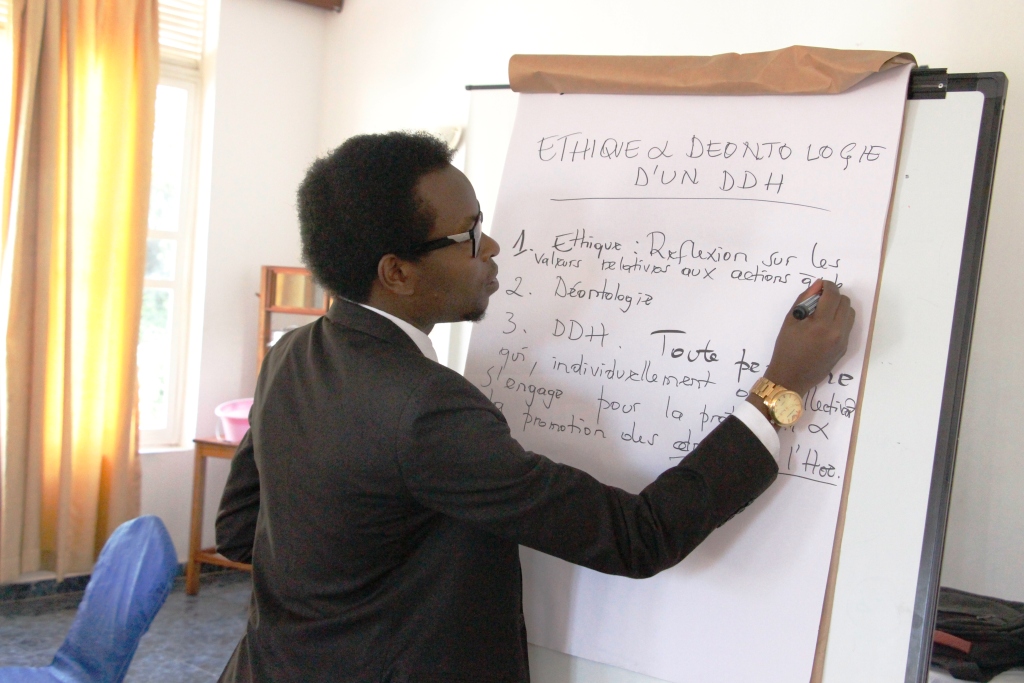 ETHIQUE & DEONTOLOGIE
D'UN DDH
1. Ethique : Reflexion sur les
valeurs relatives aux actions
2. Déontologie
3. DDH. Toute
qui, individuellement
s'engage pour la &
la promotion des l'Hoe.